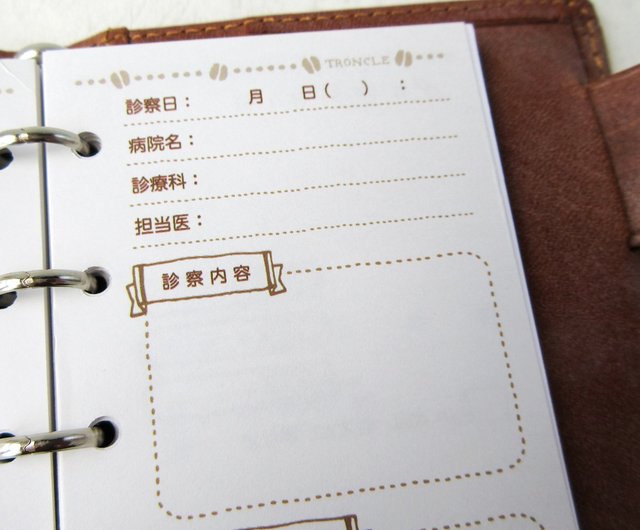 TRONCLE
診察日： 月 日( ) :
病院名：
診療科：
担当医：
診察内容